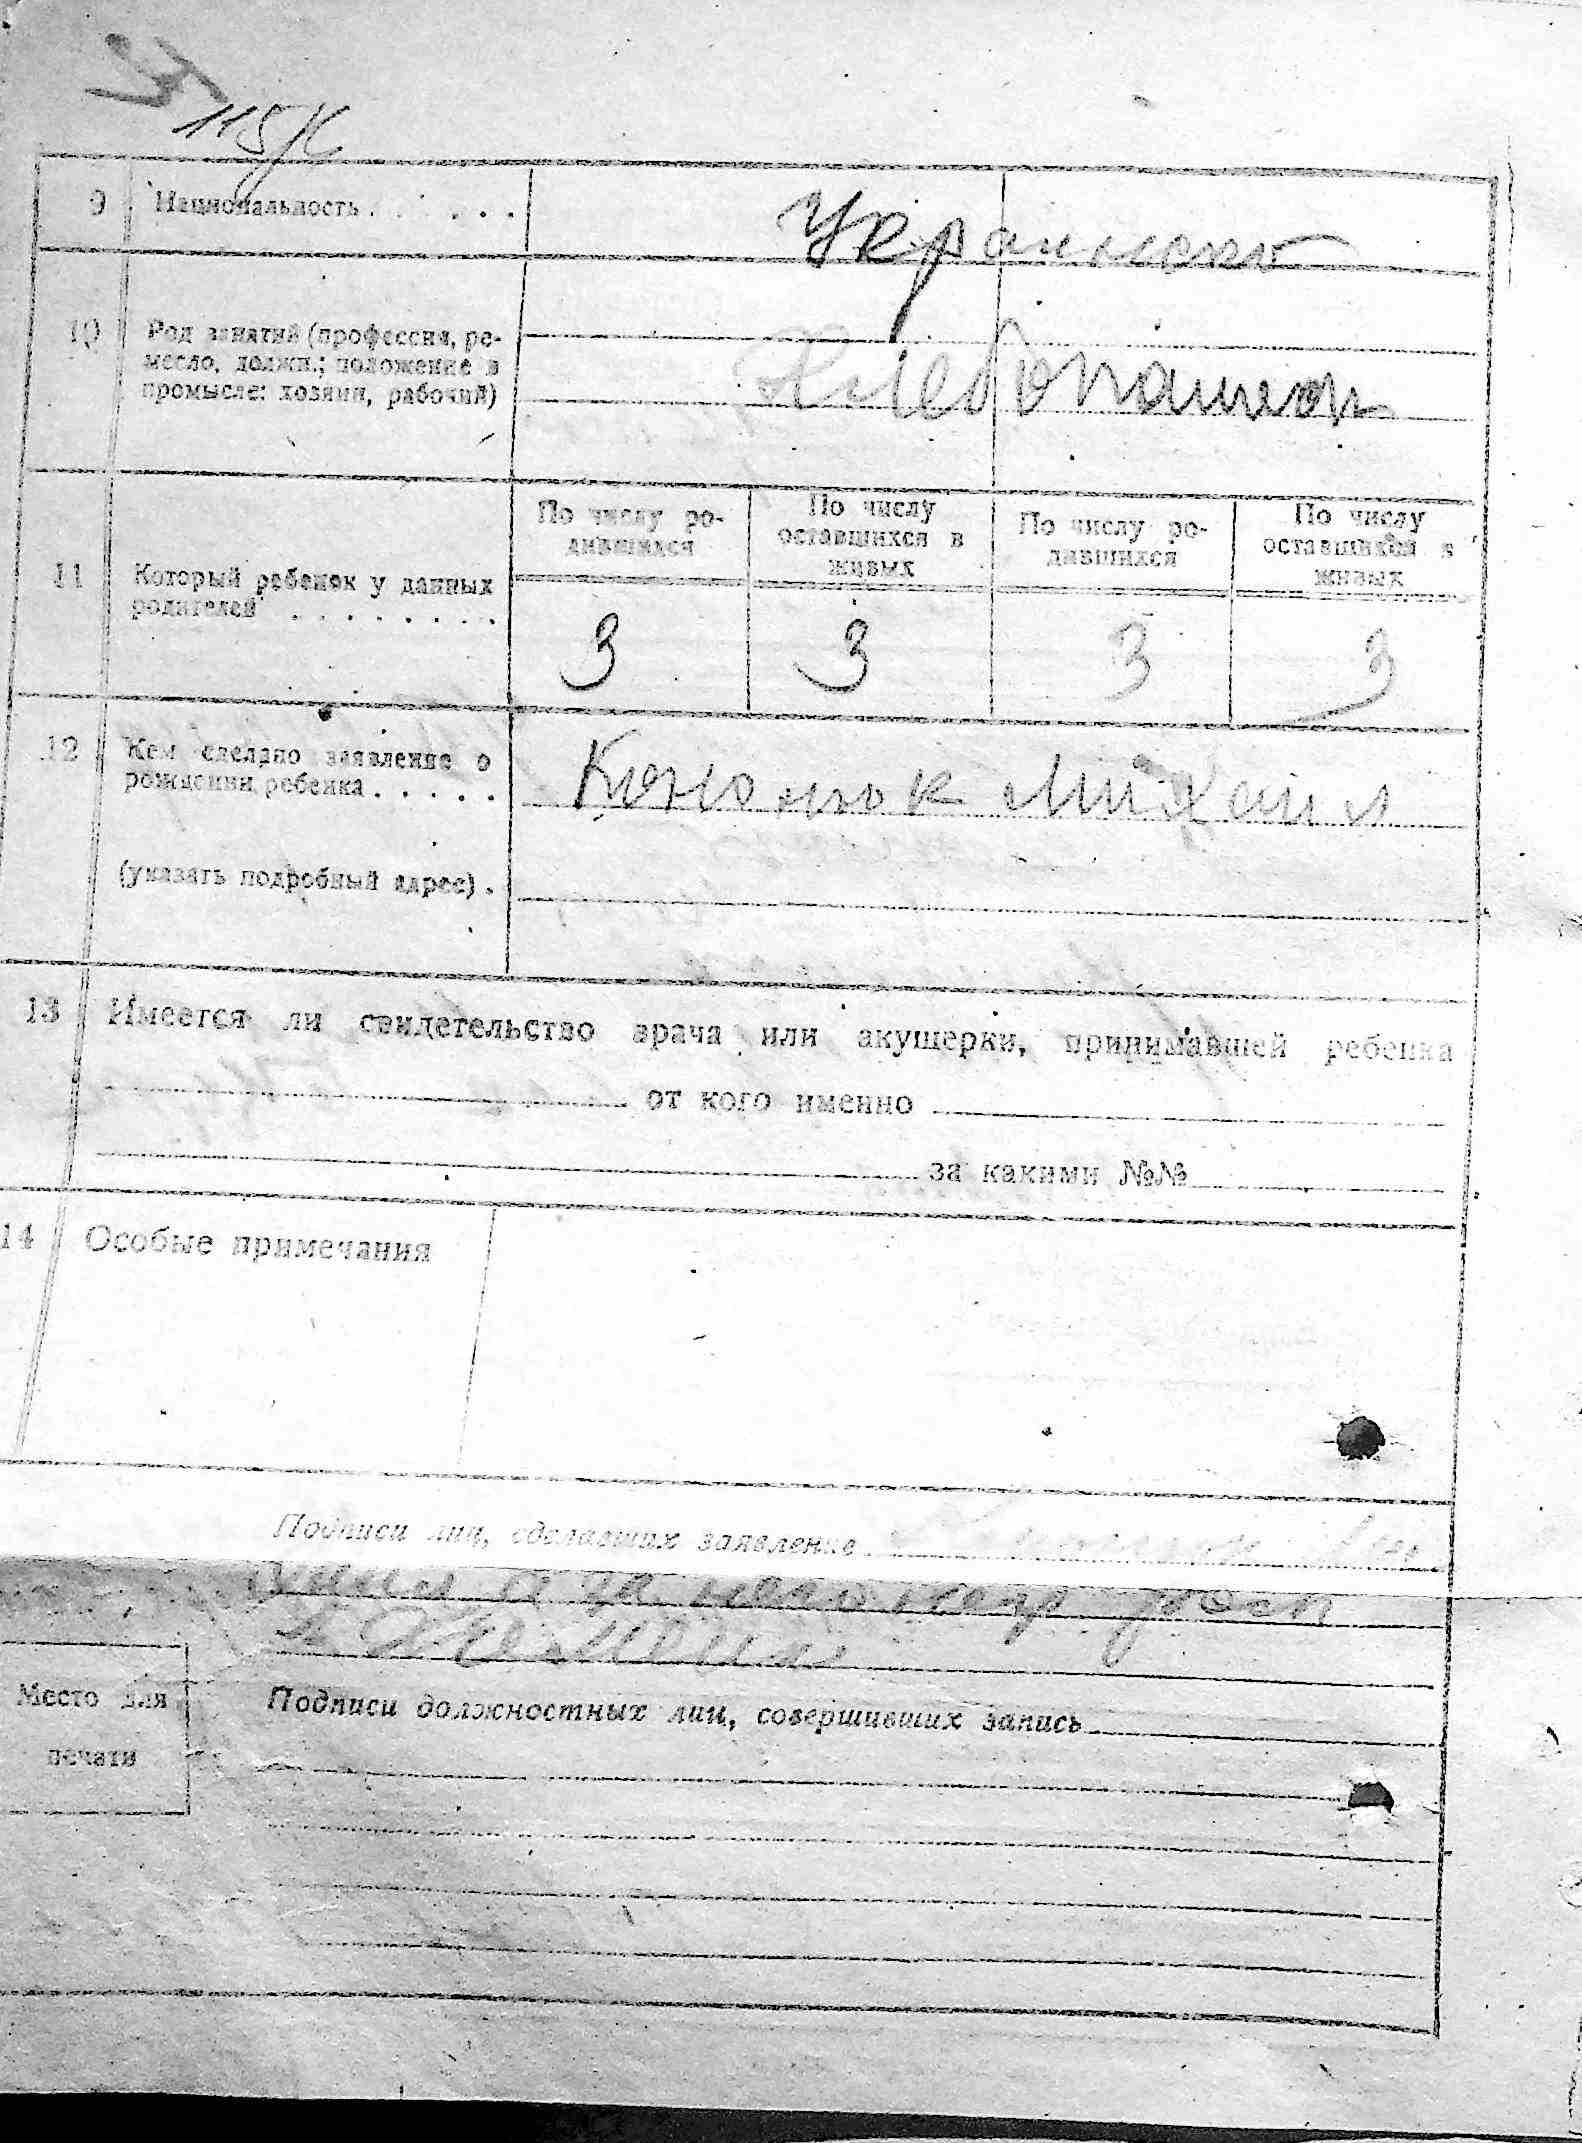 115/К
9 Национальность . . . . . .
Украинско
10 Род занятий (профессия, ре-
месло, должн.; положение в
промысле: хозяин, рабочий)
Хлебопашец
11 Который ребенок у данных
родителей . . . . . . . .
По числу ро-
дившихся
По числу
оставшихся в
живых
По числу ро-
дившихся
По числу
оставшихся в
живых
3 3 3 3
12 Кем сделано заявление о
рождении ребенка . . . . .
Кононюк Михаил
(указать подробный адрес) .
13 Имеется ли свидетельство врача или акушерки, принимавшей ребенка
от кого именно
за какими №№
14 Особые примечания
Подписи лиц, сделавших заявление
а за него негр
Место для
печати
Подписи должностных лиц, совершивших запись